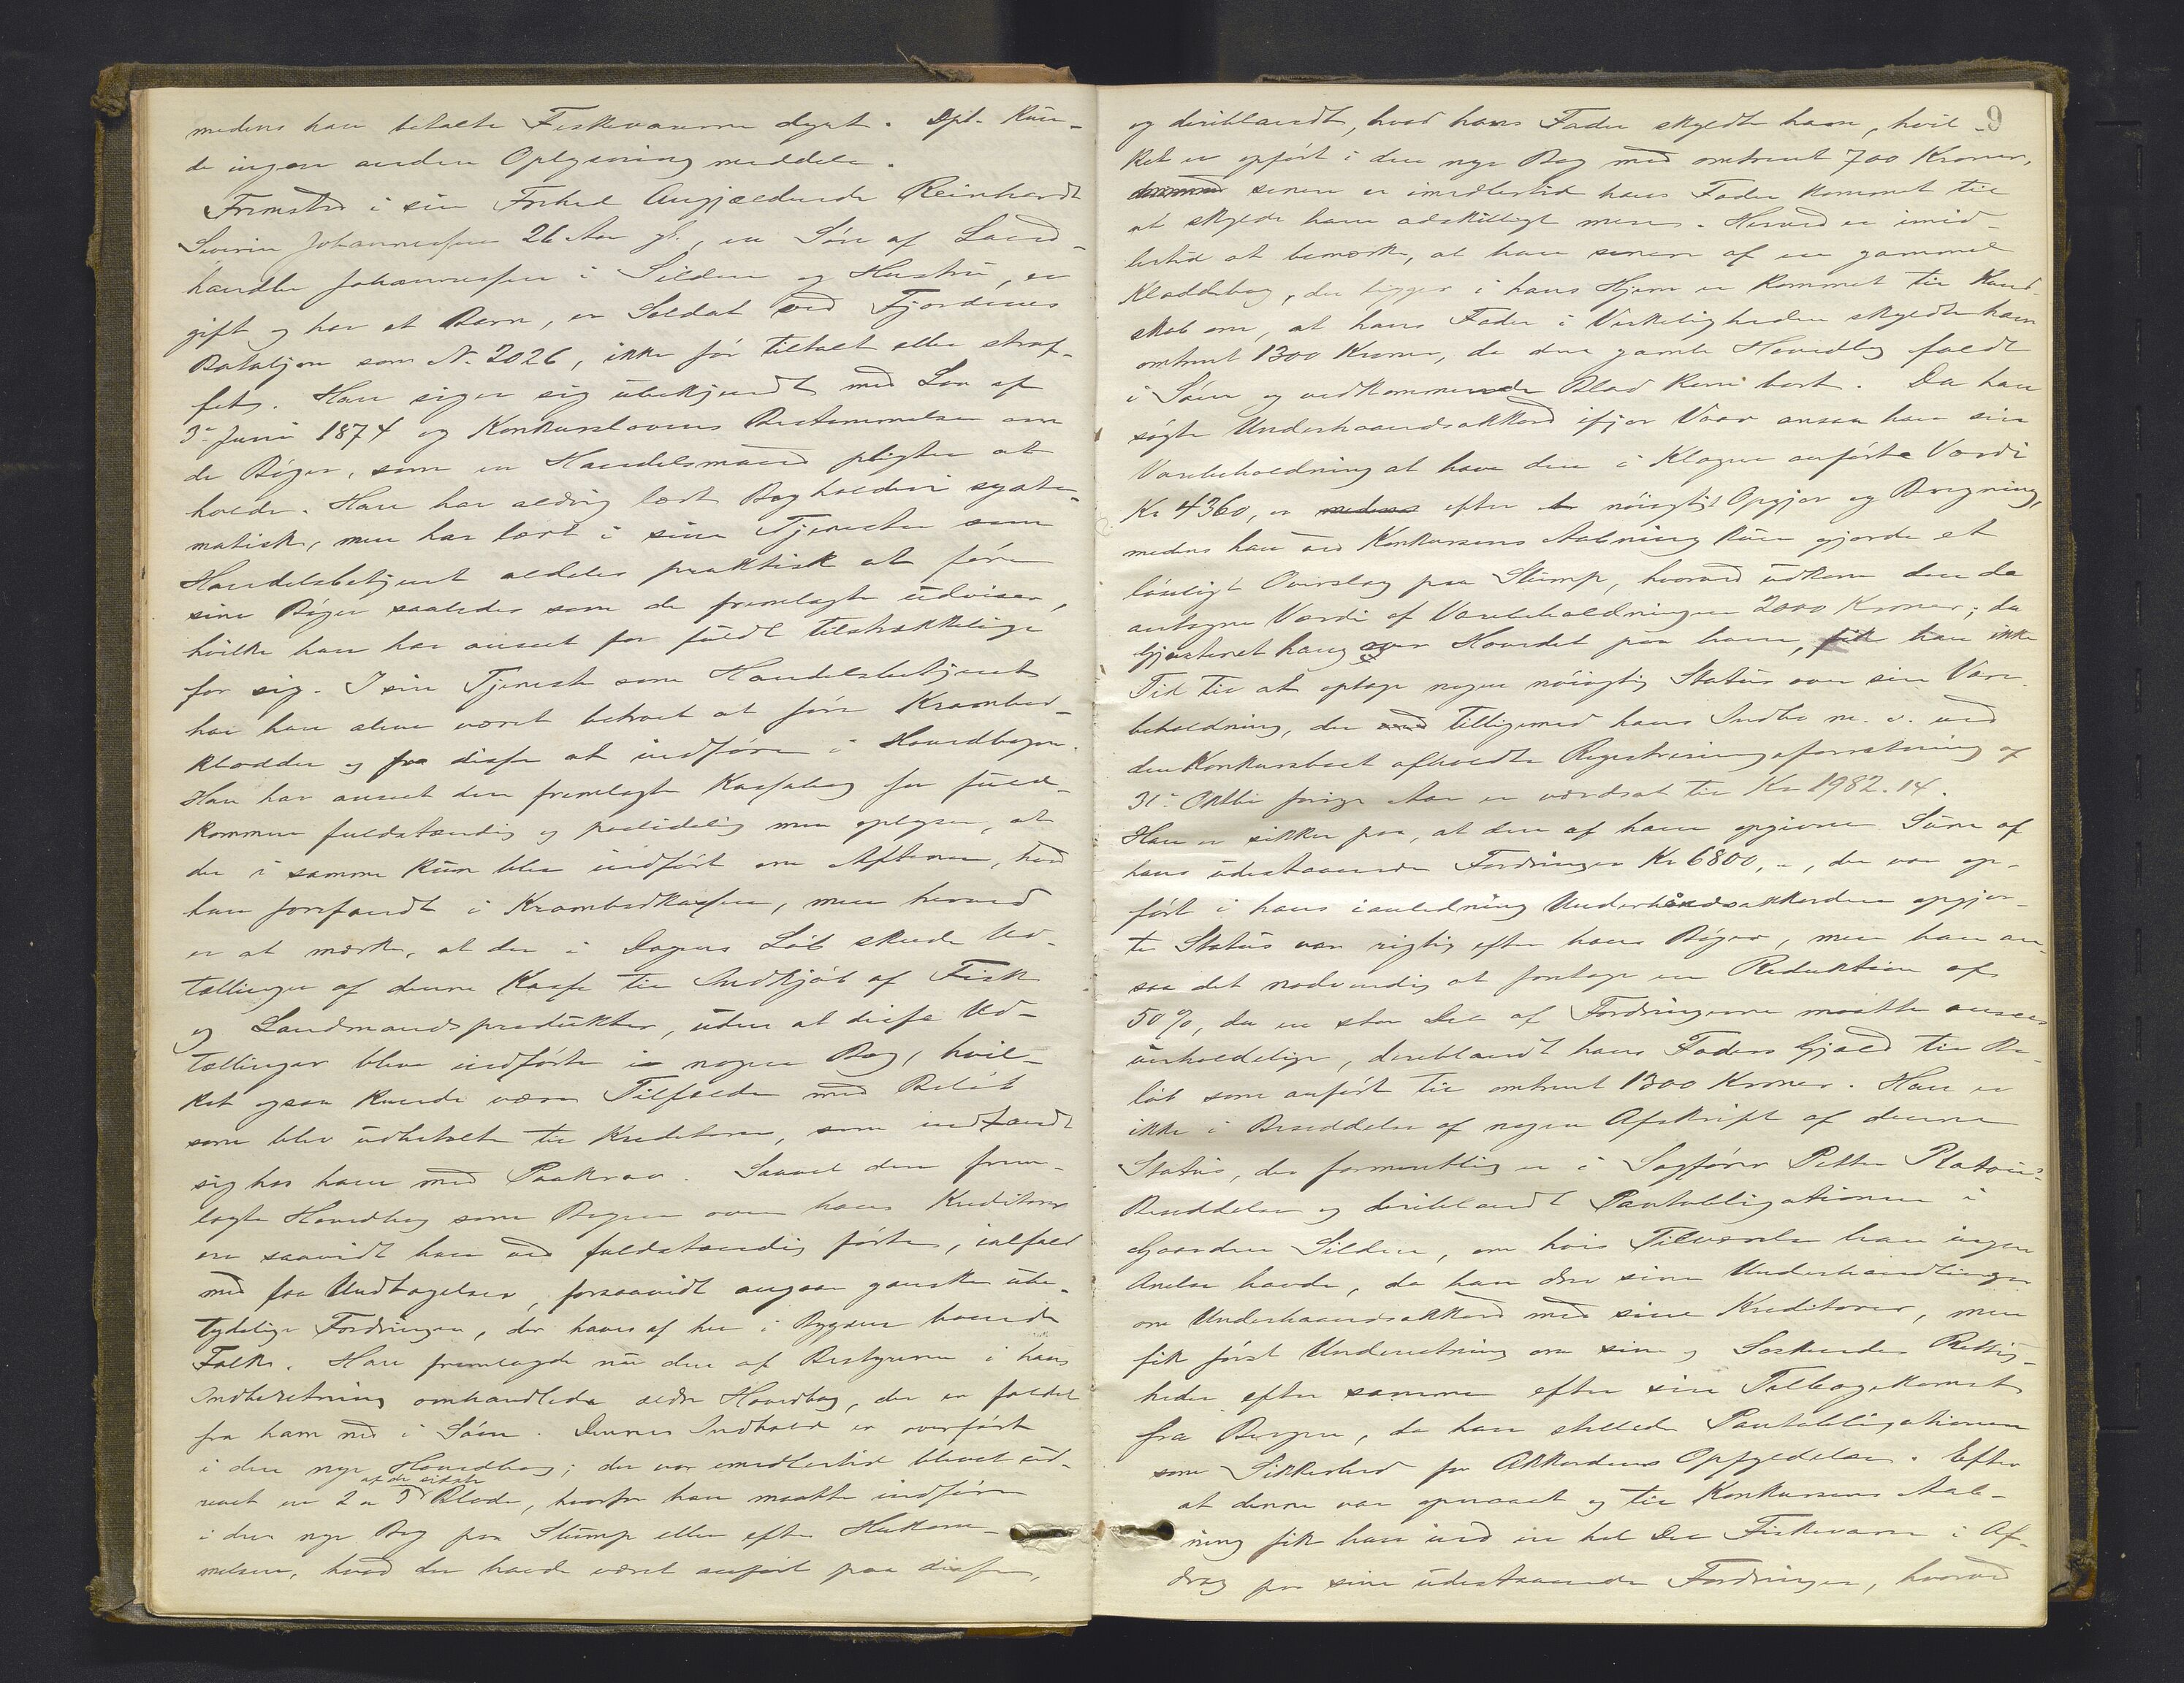 medens han betalte Fiskevarerne dyrt. Dpt. kun-
de ingen anden Oplysning meddele.
Fremstod i sin Frihed Angjældende Reinhardt
Severin Johannessen 26 Aar gl., en Søn af Land-
handler Johannessen i Silden og Hustru, er
gift og har et Barn, er Soldat ved Fjordenes
Bataljon som No. 2026, ikke før tiltalt eller straf-
fet. Han siger sig ubekjendt med Lov af
3die Juni 1874 og Konkurslovens Bestemmelser om
de Bøger, som en Handelsmand pligter at
holde. Han har aldrig lært Bogholderi syste-
matisk, men har lært i sin Tjeneste som
Handelsbetjent aldeles praktisk at føre
sine Bøger saaledes som de fremlagte udviser,
hvilke han har anseet for fuldt tilstrækkelige
for sig. I sin Tjeneste som Handelsbetjent
har han alene været betroet at føre Krambod-
kladder og fra disse at indføre i Hovedbogen.
Han har anseet den fremlagte Kassabog for fuld-
kommen fuldstændig og paalidelig men oplyser, at
der i samme kun blev indført om Aftenen, hvad
han forefandt i Krambodkassen, men herved
er at mærke, at der i Dagens Løb skede Ud-
tællinger af denne Kasse til Indkjøb af Fisk
og Landmandsprodukter, uden at disse Ud-
tællinger blev indførte i nogen Bog, hvil-
ket ogsaa kunde være Tilfældet med Beløb
som blev udbetalt til Kreditorer, som indfandt
sig hos ham med Paakrav. Saavel den frem-
lagte Hovedbog som Bogen over hans Kreditorer
er saavidt han ved fuldstændig førte, ialfald
med faa Undtagelser, forsaavidt angaar ganske ube-
tydelige Fordringer, der haves af her i Bygden boende
Folk. Han fremlagde nu den af Bestyreren i hans
Indberetning omhandlede ældre Hovedbog, der er faldet
fra ham ned i Søen. Dennes Indhold er overført
i den nye Hovedbog; der var imidlertid blevet ud-
revet en 2 a 3 af de sidste Blade, hvorfor han maatte indføre
i den nye Bog paa Slump eller efter Hukom-
melsen, hvad der havde været anført paa disse,
9
og deriblandt, hvad hans Fader skyldte ham, hvil-
ket er opført i den nye Bog med omtrent 700 Kroner,
senere er imidlertid hans Fader kommet til
at skylde ham adskilligt mere. Herved er imid-
lertid at bemærke, at han senere af en gammel
Kladdebog, der ligger i hans Hjem er kommet til Kund-
skab om, at hans Fader i Virkeligheden skyldte ham
omtrent 1300 Kroner, da den gamle Hovedbog faldt
i Søen og vedkommende Blad kom bort. Da han
søgte Underhaandsakkord ifjor Vaar ansaa han sin
Varebeholdning at have den i Klagen anførte Værdi
Kr 4360, er medens efter nøiagtigt Opgjør og Beregning,
medens han ved Konkursens Aabning kun gjorde et
løseligt Overslag paa Slump, hvorved udkom den da
antagne Værdi af Varebeholdningen 2000 Kroner; da
Gjæsteret hang over Hovedet paa ham, fik han ikke
Tid til at optage nogen nøiagtig Status over sin Vare
beholdning, der tilligemed hans Indbo m. v. ved
den Konkursboet afholdte Registreringsforretning af
31te Oktbr forrige Aar er værdsat til Kr 1982.14.
Han er sikker paa, at den af ham opgivne Sum af
hans udestaaende Fordringer Kr 6800,-, der var op-
ført i hans ianledning Underhåndsakkorden opgjor-
te Status var rigtig efter hans Bøger, men han an-
saa det nødvendig at foretage en Reduktion af
50 %, da en stor Del af Fordringerne maatte ansees
uerholdelige, deriblandt hans Faders Gjæld til Be-
løb som anført til omtrent 1300 Kroner. Han er
ikke i Besiddelse af nogen Afskrift af denne
Status, der formentlig er i Sagfører Petter Platous
Besiddelse og deriblandt Pantobligationen i
Gaarden Silden, om hvis Tilværelse han ingen
Anelse havde, da han drev sine Underhandlinger
om Underhaandsakkord med sine Kreditorer, men
fik først Underretning om sine og Søskendes Rettig-
heder efter samme efter sin Tilbagekomst
fra Bergen, da han stillede Pantobligationen
som Sikkerhed for Akkordens Opfyldelse. Efter
at denne var opnaaet og til Konkursens Aab-
ning fik han ind en hel Del Fiskevarer i Af-
drag paa sine udestaaende Fordringer, hvorved